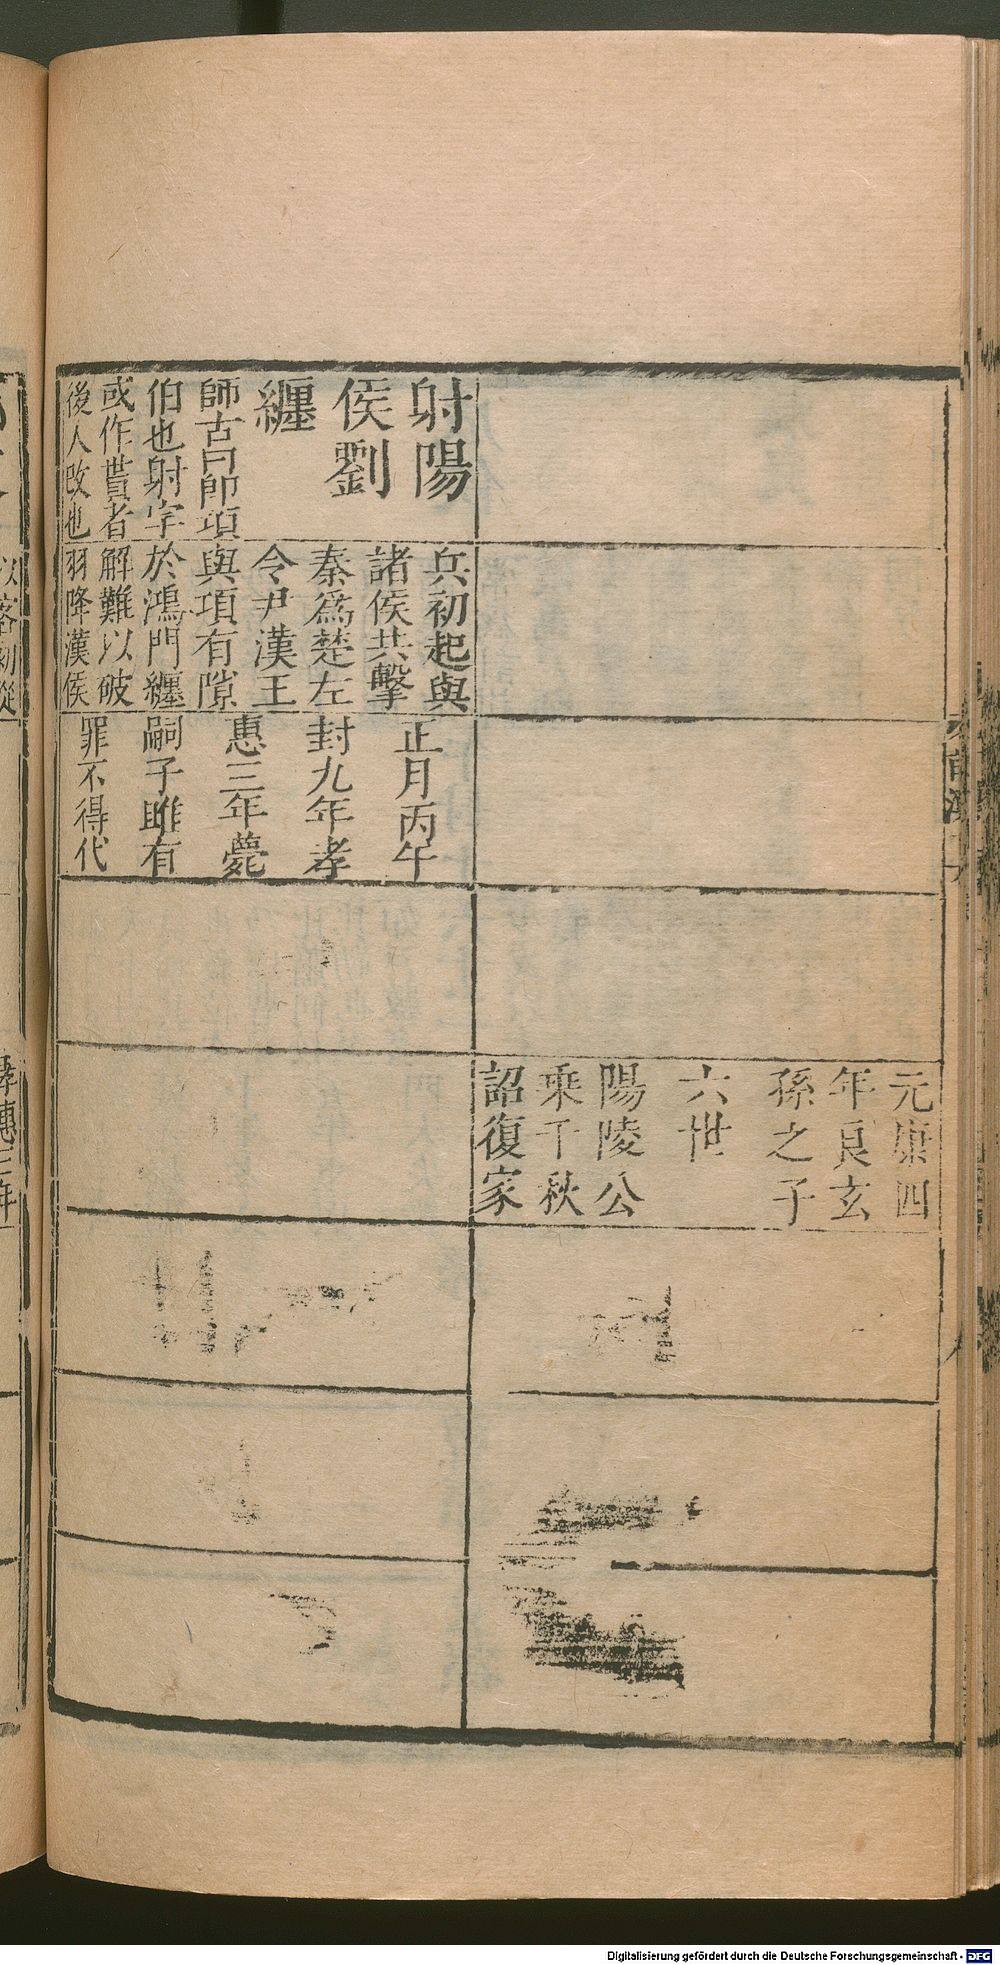 元康四
年良玄
孫之子
六世
陽陵公
乘千秋
詔復家
射陽
侯劉
纏
師古曰即項
伯也射字
或作貰者
後人改也
兵初起與
諸侯共擊
秦爲楚左
令尹漢王
與項有隙
於鴻門纏
解難以破
羽降漢侯
正月丙午
封九年孝
惠三年薨
嗣子睢有
罪不得代
Digitalisierung gefördert durch die Deutsche Forschungsgemeinschaft - DFG